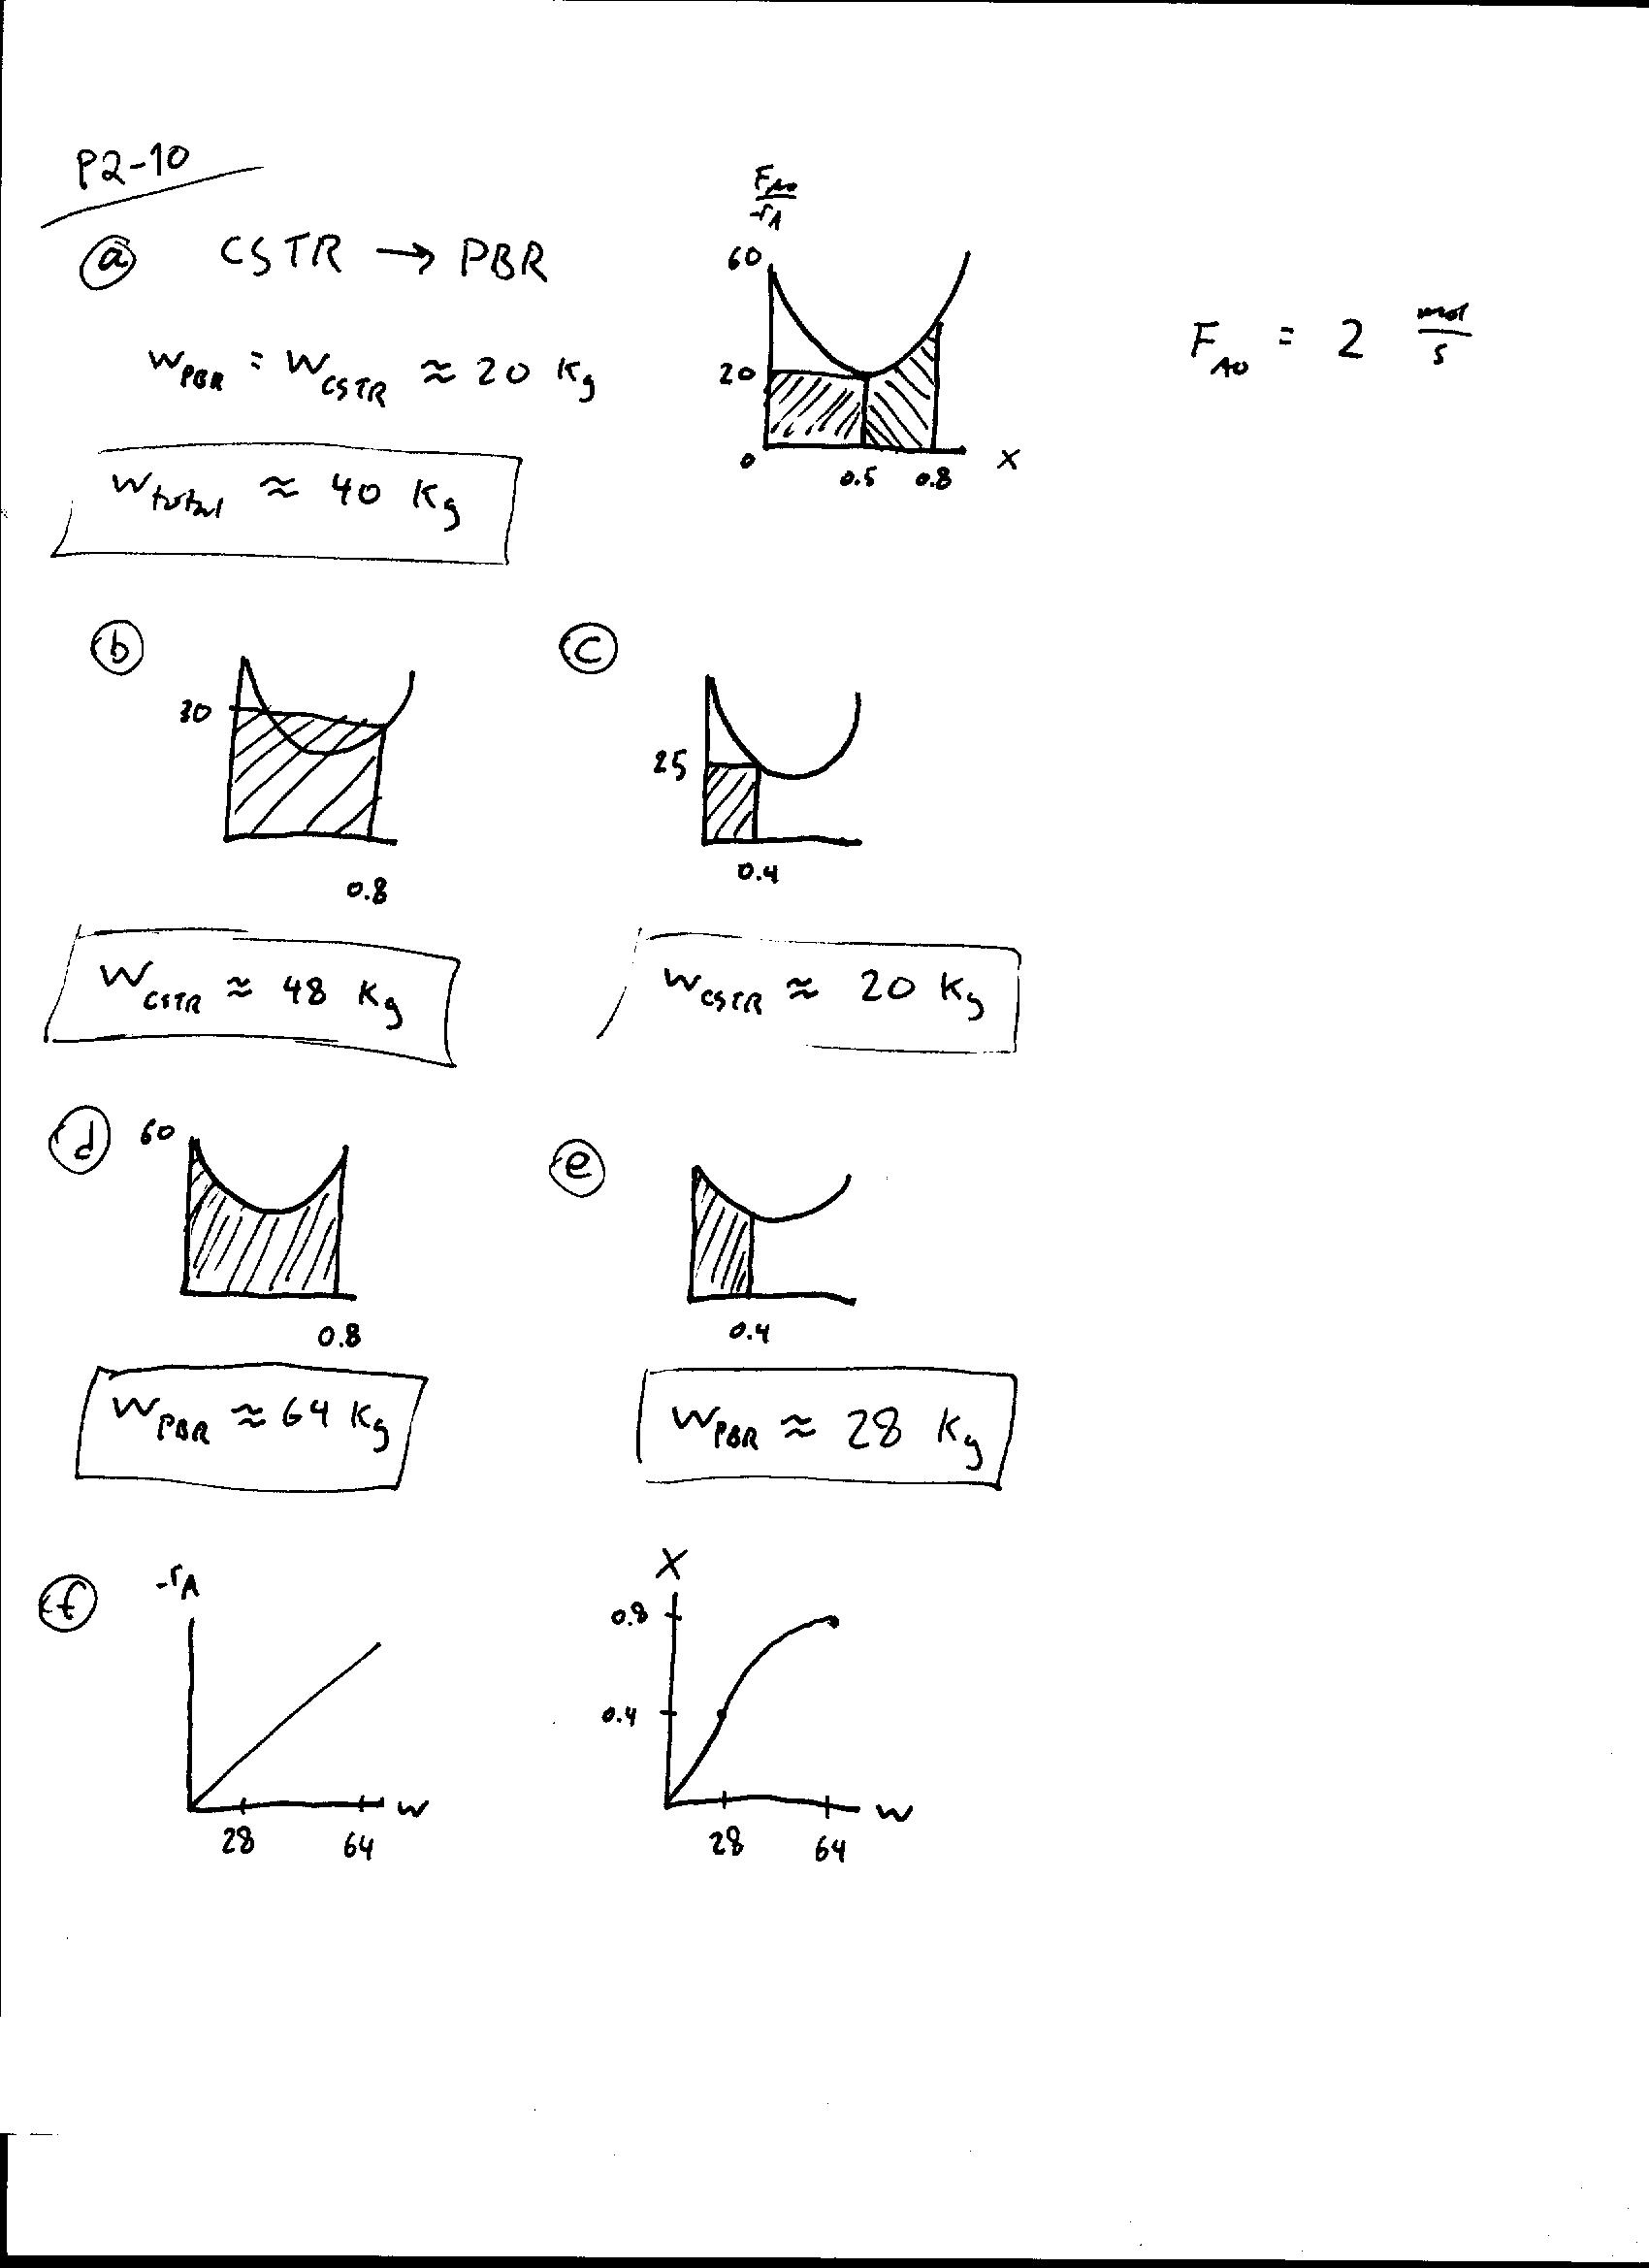 P2-10
a CSTR → PBR
W_PBR = W_CSTR ≈ 20 Kg
W_total ≈ 40 Kg
F_A0
-r_A
60
20
0
0.5 0.8 X
F_A0 = 2 mol/s
b
30
0.8
W_CSTR ≈ 48 Kg
c
25
0.4
W_CSTR ≈ 20 Kg
d 60
0.8
W_PBR ≈ 64 Kg
e
0.4
W_PBR ≈ 28 Kg
f -r_A
28 64 W
X
0.8
0.4
28 64 W